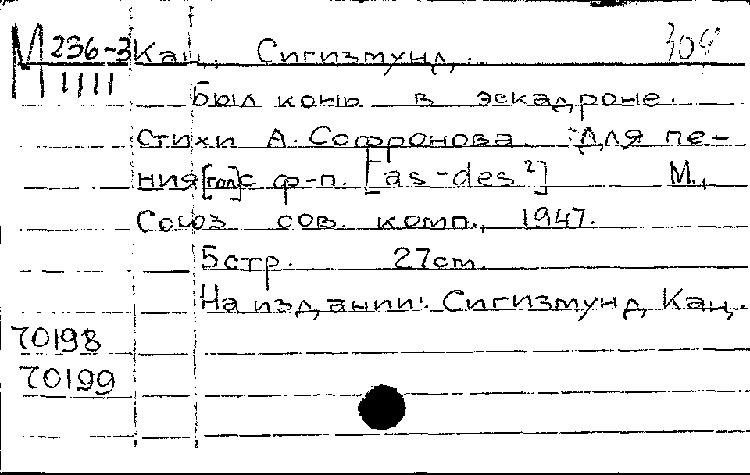 М 236-3 Кац, Сигизмунд.
1111
Был конь в эскадроне.
Стихи А. Софронова. Для пе-
ния [гол] с ф-п. [as-des²] М.,
Союз сов. комп., 1947.
5 стр. 27 cm.
На издании: Сигизмунд Кац.
70198
70199